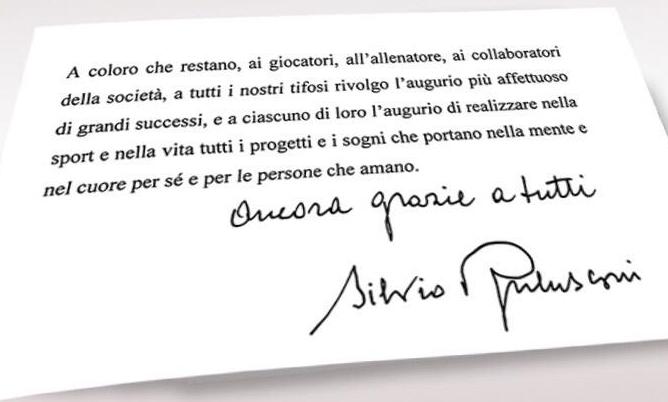 A coloro che restano, ai giocatori, all'allenatore, ai collaboratori
della società, a tutti i nostri tifosi rivolgo l'augurio più affettuoso
di grandi successi, e a ciascuno di loro l'augurio di realizzare nella
sport e nella vita tutti i progetti e i sogni che portano nella mente e
nel cuore per sé e per le persone che amano.
Ancora grazie a tutti
Silvio Berlusconi